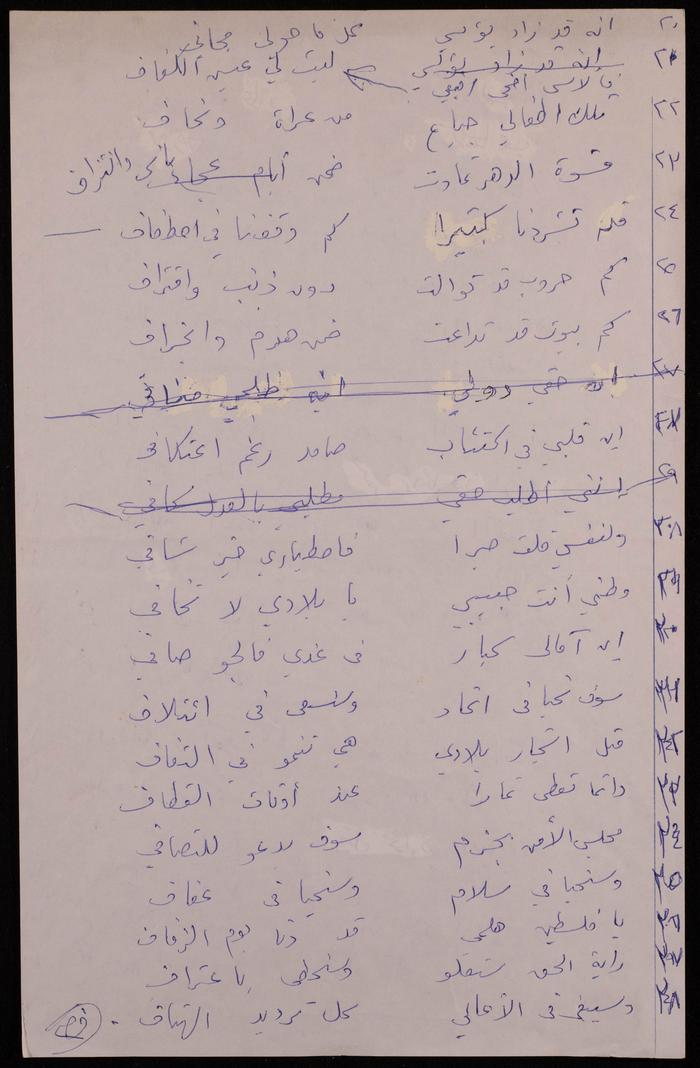 ٢٠ انه قد زاد بؤسي كل ما حولي مجافي
٢١ انه قد زاد بؤسي ليت لي عيش الكفاف
فالأسى أضحى
٢٢ تلك اطفالي جياع من عراة ونحاف
٢٣ قسوة الدهر تمادت ضمن أيام عجاف
٢٤ قد تشردنا كثيرا كم وقفنا في اصطفاف
٢٥ كم حروب قد توالت دون ذنب واقتراف
٢٦ كم بيوت قد تداعت ضمن هدم وانجراف
٢٧ ان حقي دولي انه
ان قلبي في اكتئاب صامد رغم اعتكافي
٢٩ إنني أطلب حقي مطلبي بالعدل كافي
ولنفسي قلت صبرا فاصطباري خير شافي
وطني أنت حبيبي يا بلادي لا تخافي
ان آمالى كبار فى غدي فالجو صافي
سوف نحيا في اتحاد وسنسعى في ائتلاف
مثل اشجار بلادي هي تنمو في التفاف
دائما تعطى ثمارا عند أوقات القطاف
مجلس الأمن بحزم سوف يدعو للتصافي
وسنحيا في سلام وسنحيا في عفاف
يا فلسطين هلمي قد دنا يوم الزفاف
راية الحق ستعلو وسنحظى باعتراف
وسيبقى في الأعالي كل ترديد الهتاف.